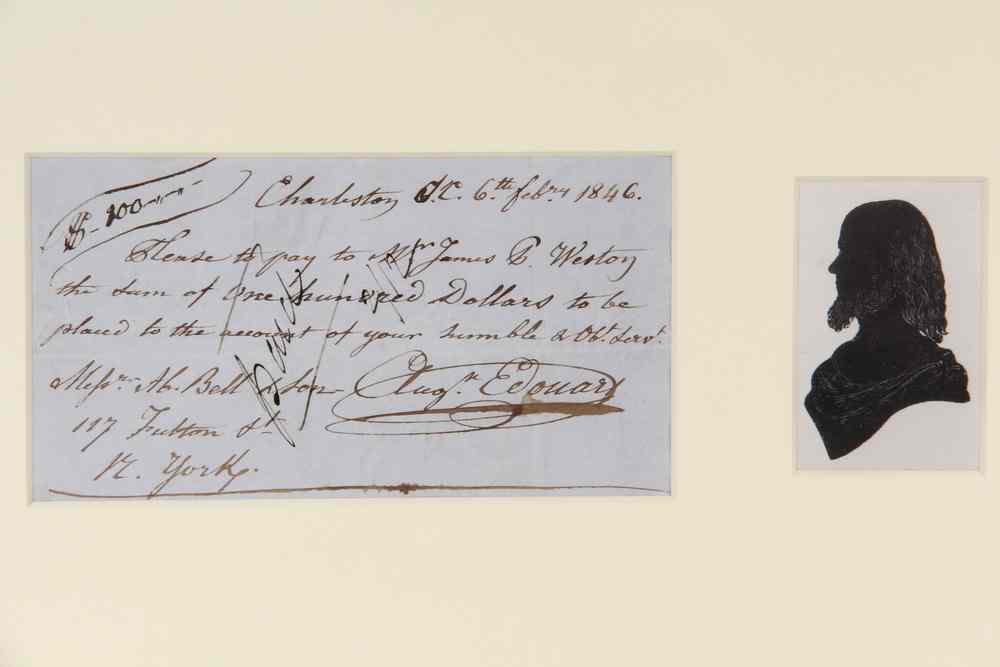 $-100--"--
Charleston S.C. 6.th feb.ry 1846.
Please to pay to Mr. James P. Weston
the sum of one hundred Dollars to be
placed to the account of your humble & Ob.t Serv.t
Mess.rs Ab. Bell & Son Aug.n Edouart
117 Fulton St
N. York.